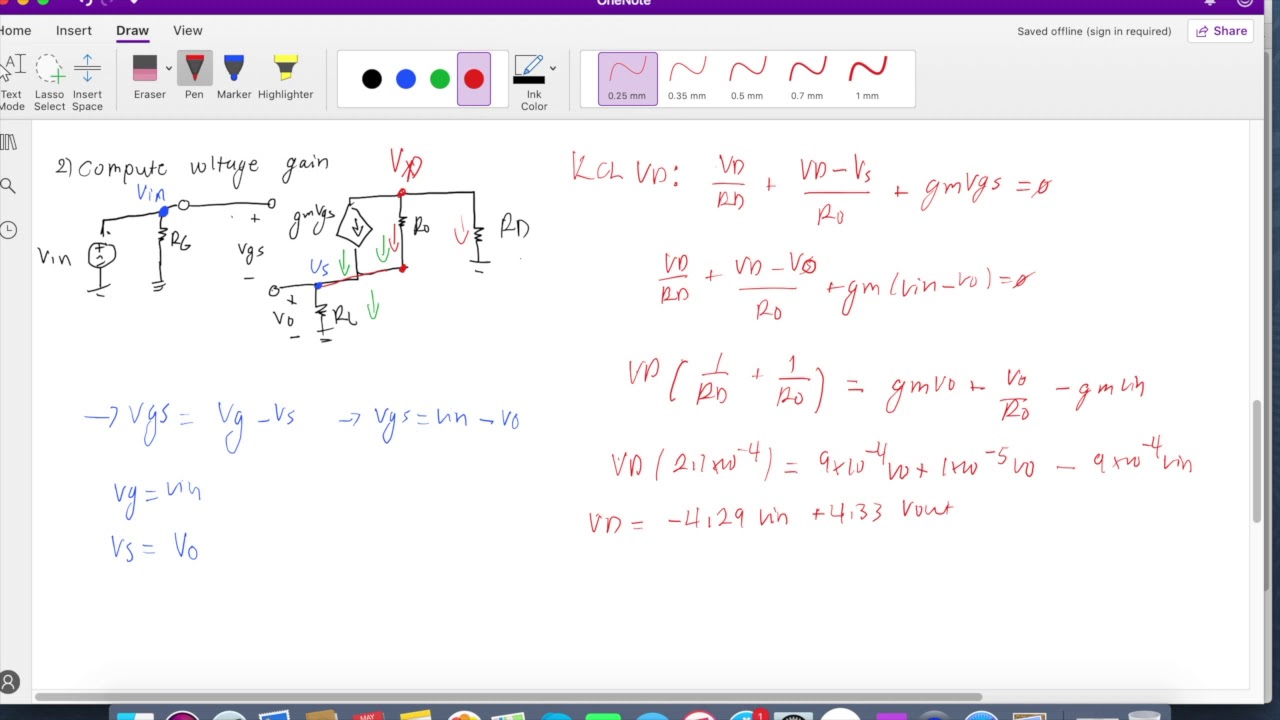 OneNote
Home Insert Draw View
Saved offline (sign in required) Share
Text Mode
Lasso Select
Insert Space
Eraser
Pen
Marker
Highlighter
Ink Color
0.25 mm
0.35 mm
0.5 mm
0.7 mm
1 mm
2) Compute voltage gain
Vin
Vin
RG
+
Vgs
-
gmVgs
VD
RO
RD
Vs
+
Vo
-
RL
→ Vgs = Vg - Vs → Vgs = Vin - Vo
Vg = Vin
Vs = Vo
KCL VD: VD/RD + VD-Vs/RO + gmVgs = 0
VD/RD + VD-VO/RO + gm(Vin-Vo) = 0
VD (1/RD + 1/RO) = gmVo + Vo/RO - gmVin
VD (2.1×10^-4) = 9×10^-4 Vo + 1×10^-5 Vo - 9×10^-4 Vin
VD = -4.29 Vin + 4.33 Vout
MAY
1